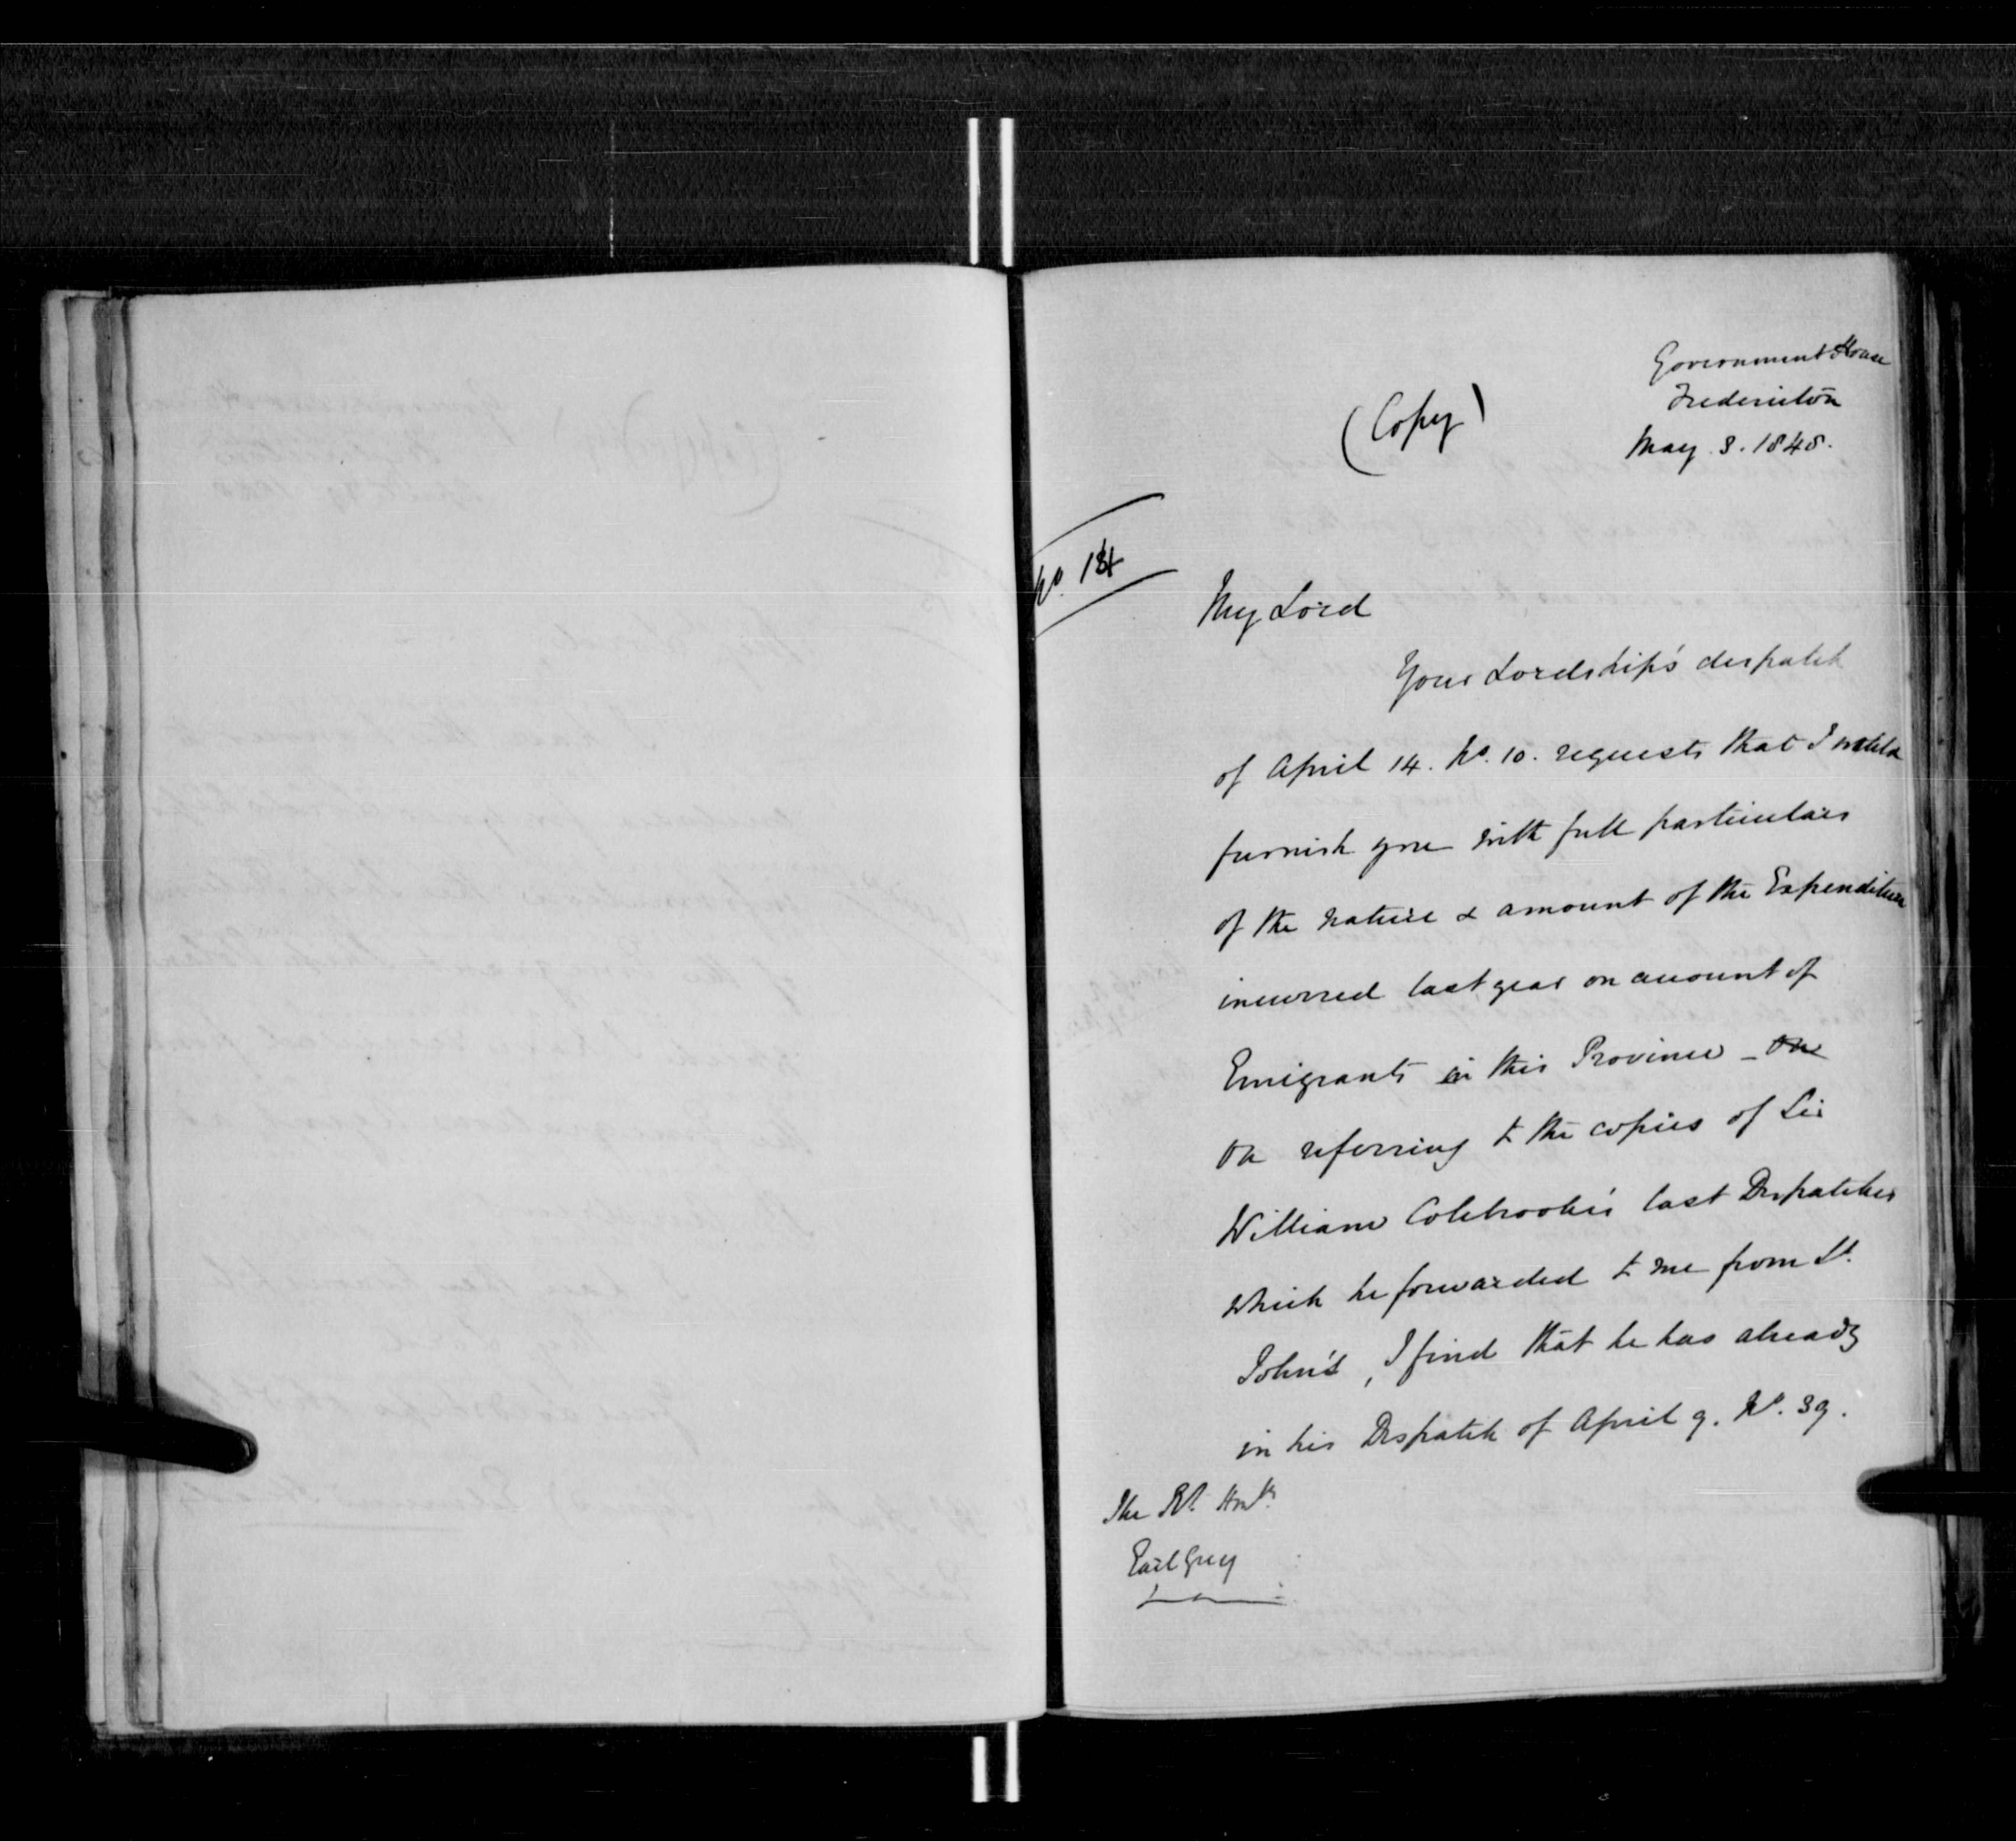 Government House
Fredericton
May 8. 1848.
(Copy)
No. 14
My Lord
Your Lordship's despatch
of April 14. No. 10. requests that I would
furnish you with full particulars
of the nature & amount of the Expenditure
incurred last year on account of
Emigrants in this Province – On
On referring to the copies of Sir
William Colebrooke's last Despatches
which he forwarded to me from St.
John's, I find that he has already
in his Despatch of April 9. No. 39.
The Rt. Honble
Earl Grey